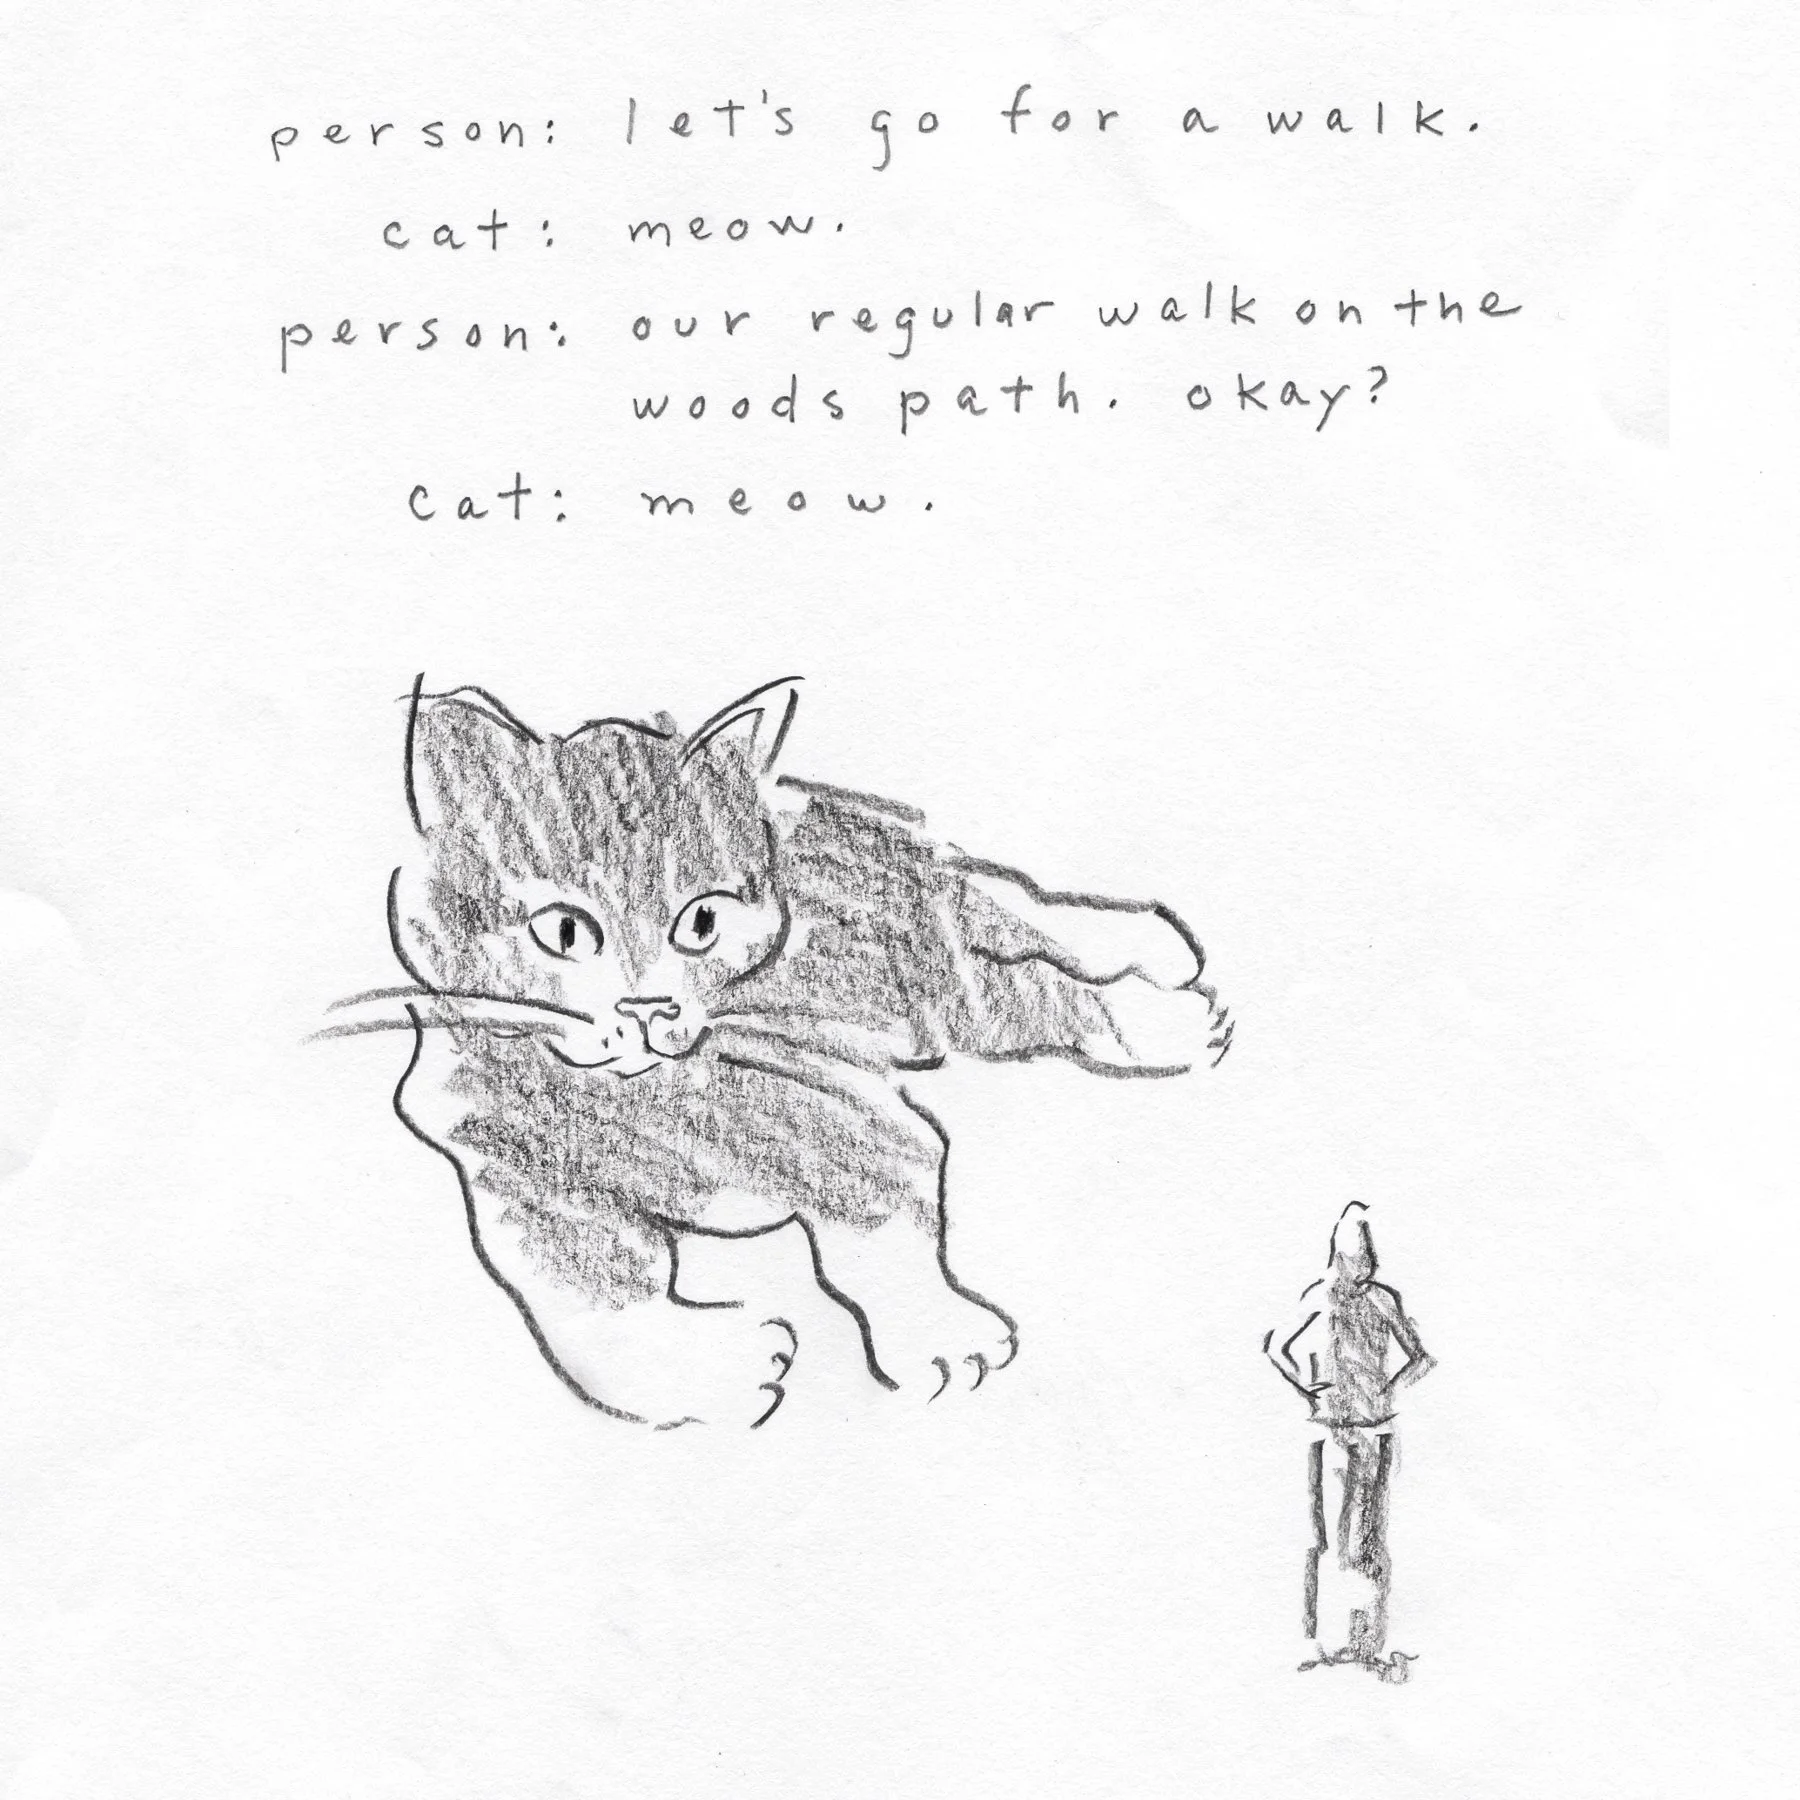 person: let's go for a walk.
cat: meow.
person: our regular walk on the
woods path. okay?
cat: meow.